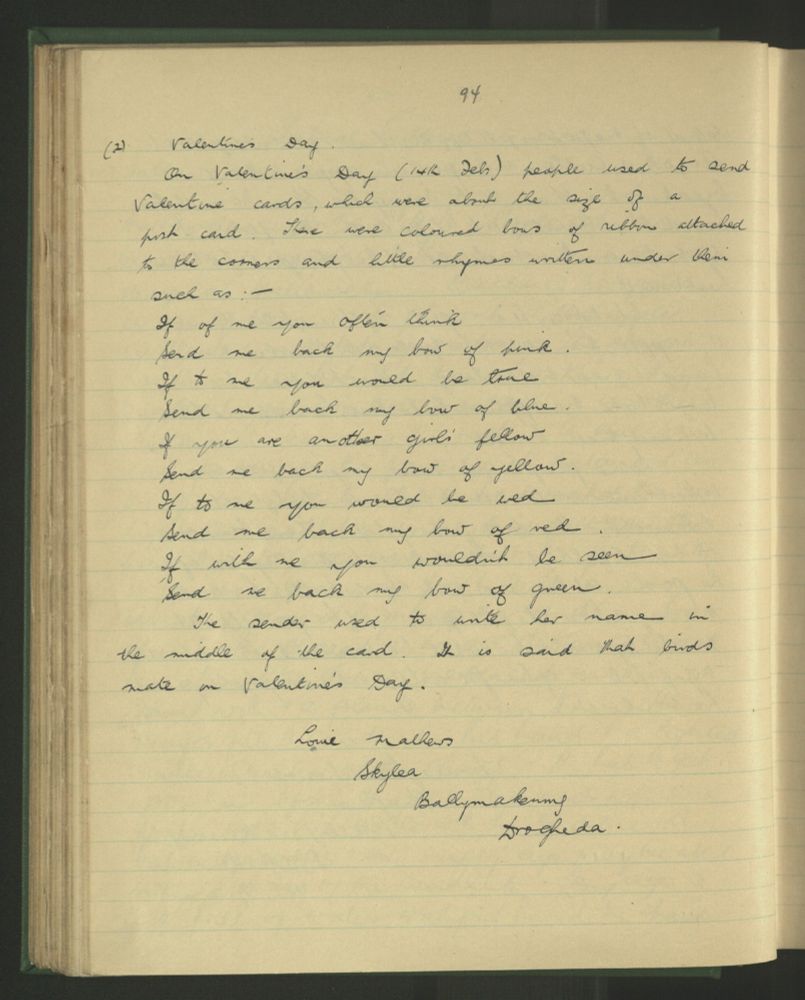 94
(2) Valentine's Day.
On Valentine's Day (14th Feb) people used to send
Valentine cards, which were about the size of a
post card. There were coloured bows of ribbon attached
to the corners and little rhymes written under them
such as :-
If of me you often think
Send me back my bow of pink.
If to me you would be true
Send me back my bow of blue.
If you are another girl's fellow
Send me back my bow of yellow.
If to me you would be wed
Send me back my bow of red.
If with me you wouldn't be seen
Send me back my bow of green.
The sender used to write her name in
the middle of the card. It is said that birds
mate on Valentine's Day.
Louie Mathews
Skylea
Ballymakenny
Drogheda.